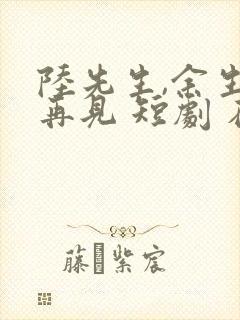 陸先生,余生
再見 短劇
藤 紫宸